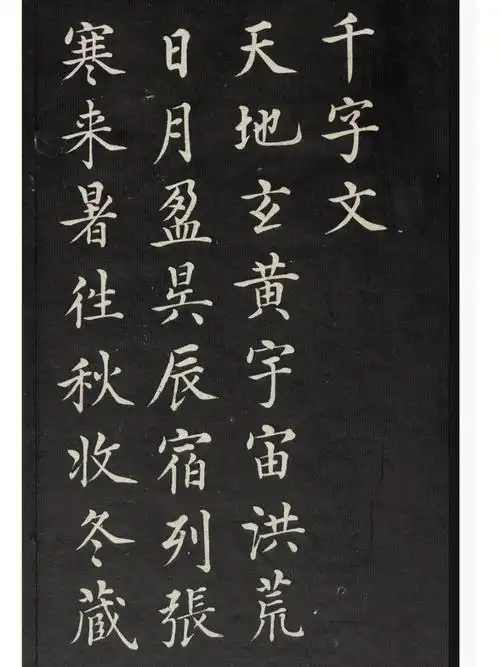 千字文
天地玄黄宇宙洪荒
日月盈昃辰宿列張
寒来暑往秋收冬藏